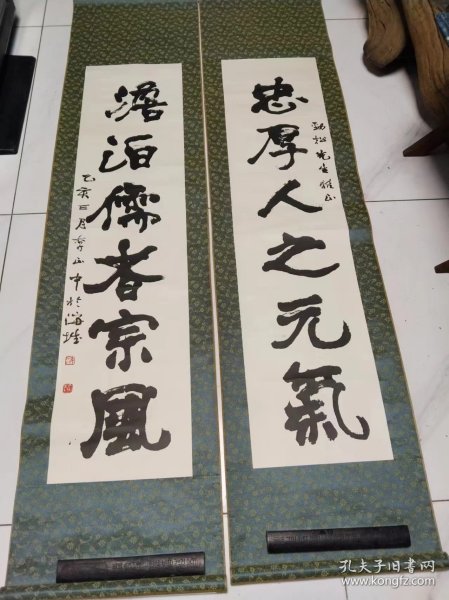 忠厚人之元氣
勁松先生雅正
澹泊儒者宗風
乙亥三月
孔夫子旧书网
www.kongfz.com